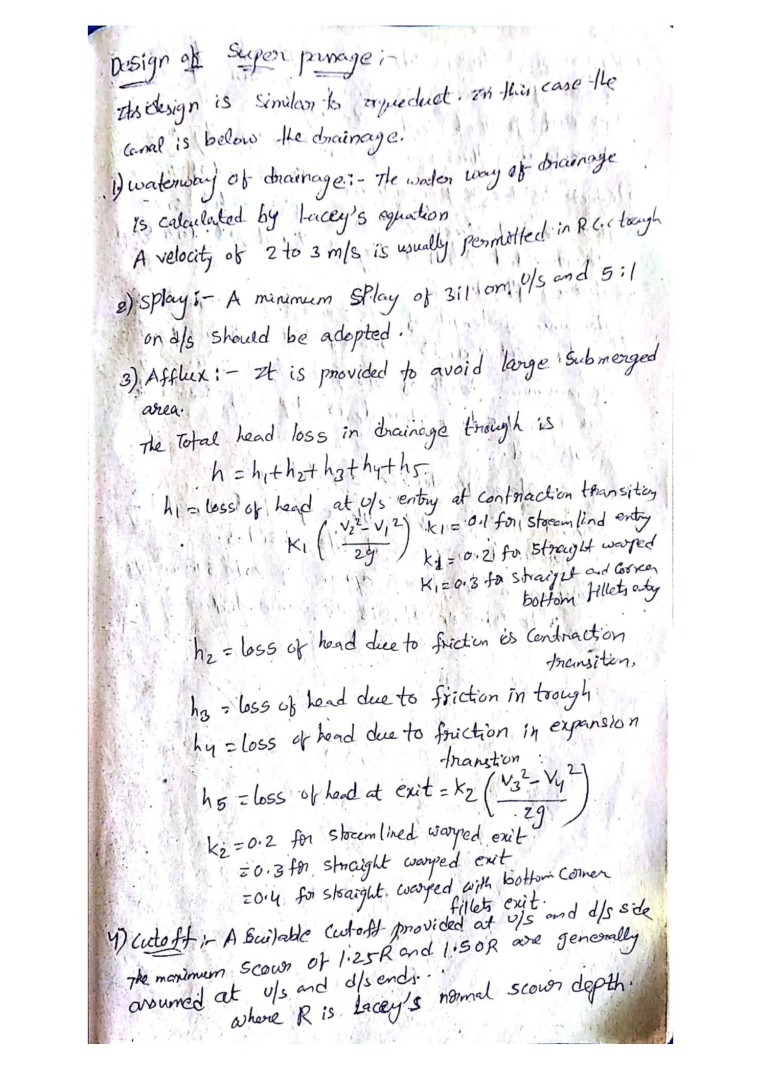 Design of Super passage :-
Its design is similar to aqueduct. In this case the
canal is below the drainage.
1) waterway of drainage :- The water way of drainage
is calculated by Lacey's equation
A velocity of 2 to 3 m/s is usually permitted in R.C.c trough
2) Splay :- A minimum Splay of 3:1 on u/s and 5:1
on d/s should be adopted.
3) Afflux :- It is provided to avoid large submerged
area.
The Total head loss in drainage trough is
h = h1+h2+h3+h4+h5
h1 = loss of head at u/s entry at contraction transition
K1 ( (V2² - V1²) / 2g ) K1 = 0.1 for streamlind entry
K1 = 0.2 for Straight warped
K1 = 0.3 for straight and corner
bottom fillets entry
h2 = loss of head due to friction is Contraction
transition,
h3 = loss of head due to friction in trough
h4 = loss of head due to friction in expansion
transtion
h5 = loss of head at exit = K2 ( (V3² - V4²) / 2g )
K2 = 0.2 for streemlined warped exit
= 0.3 for straight warped exit
= 0.4 for straight warped with bottom corner
fillets exit.
4) Cutoff :- A Suitable Cutoff provided at u/s and d/s side
The maximum scour of 1.25R and 1.50R are generally
assumed at u/s and d/s ends.
where R is Lacey's normal scour depth.